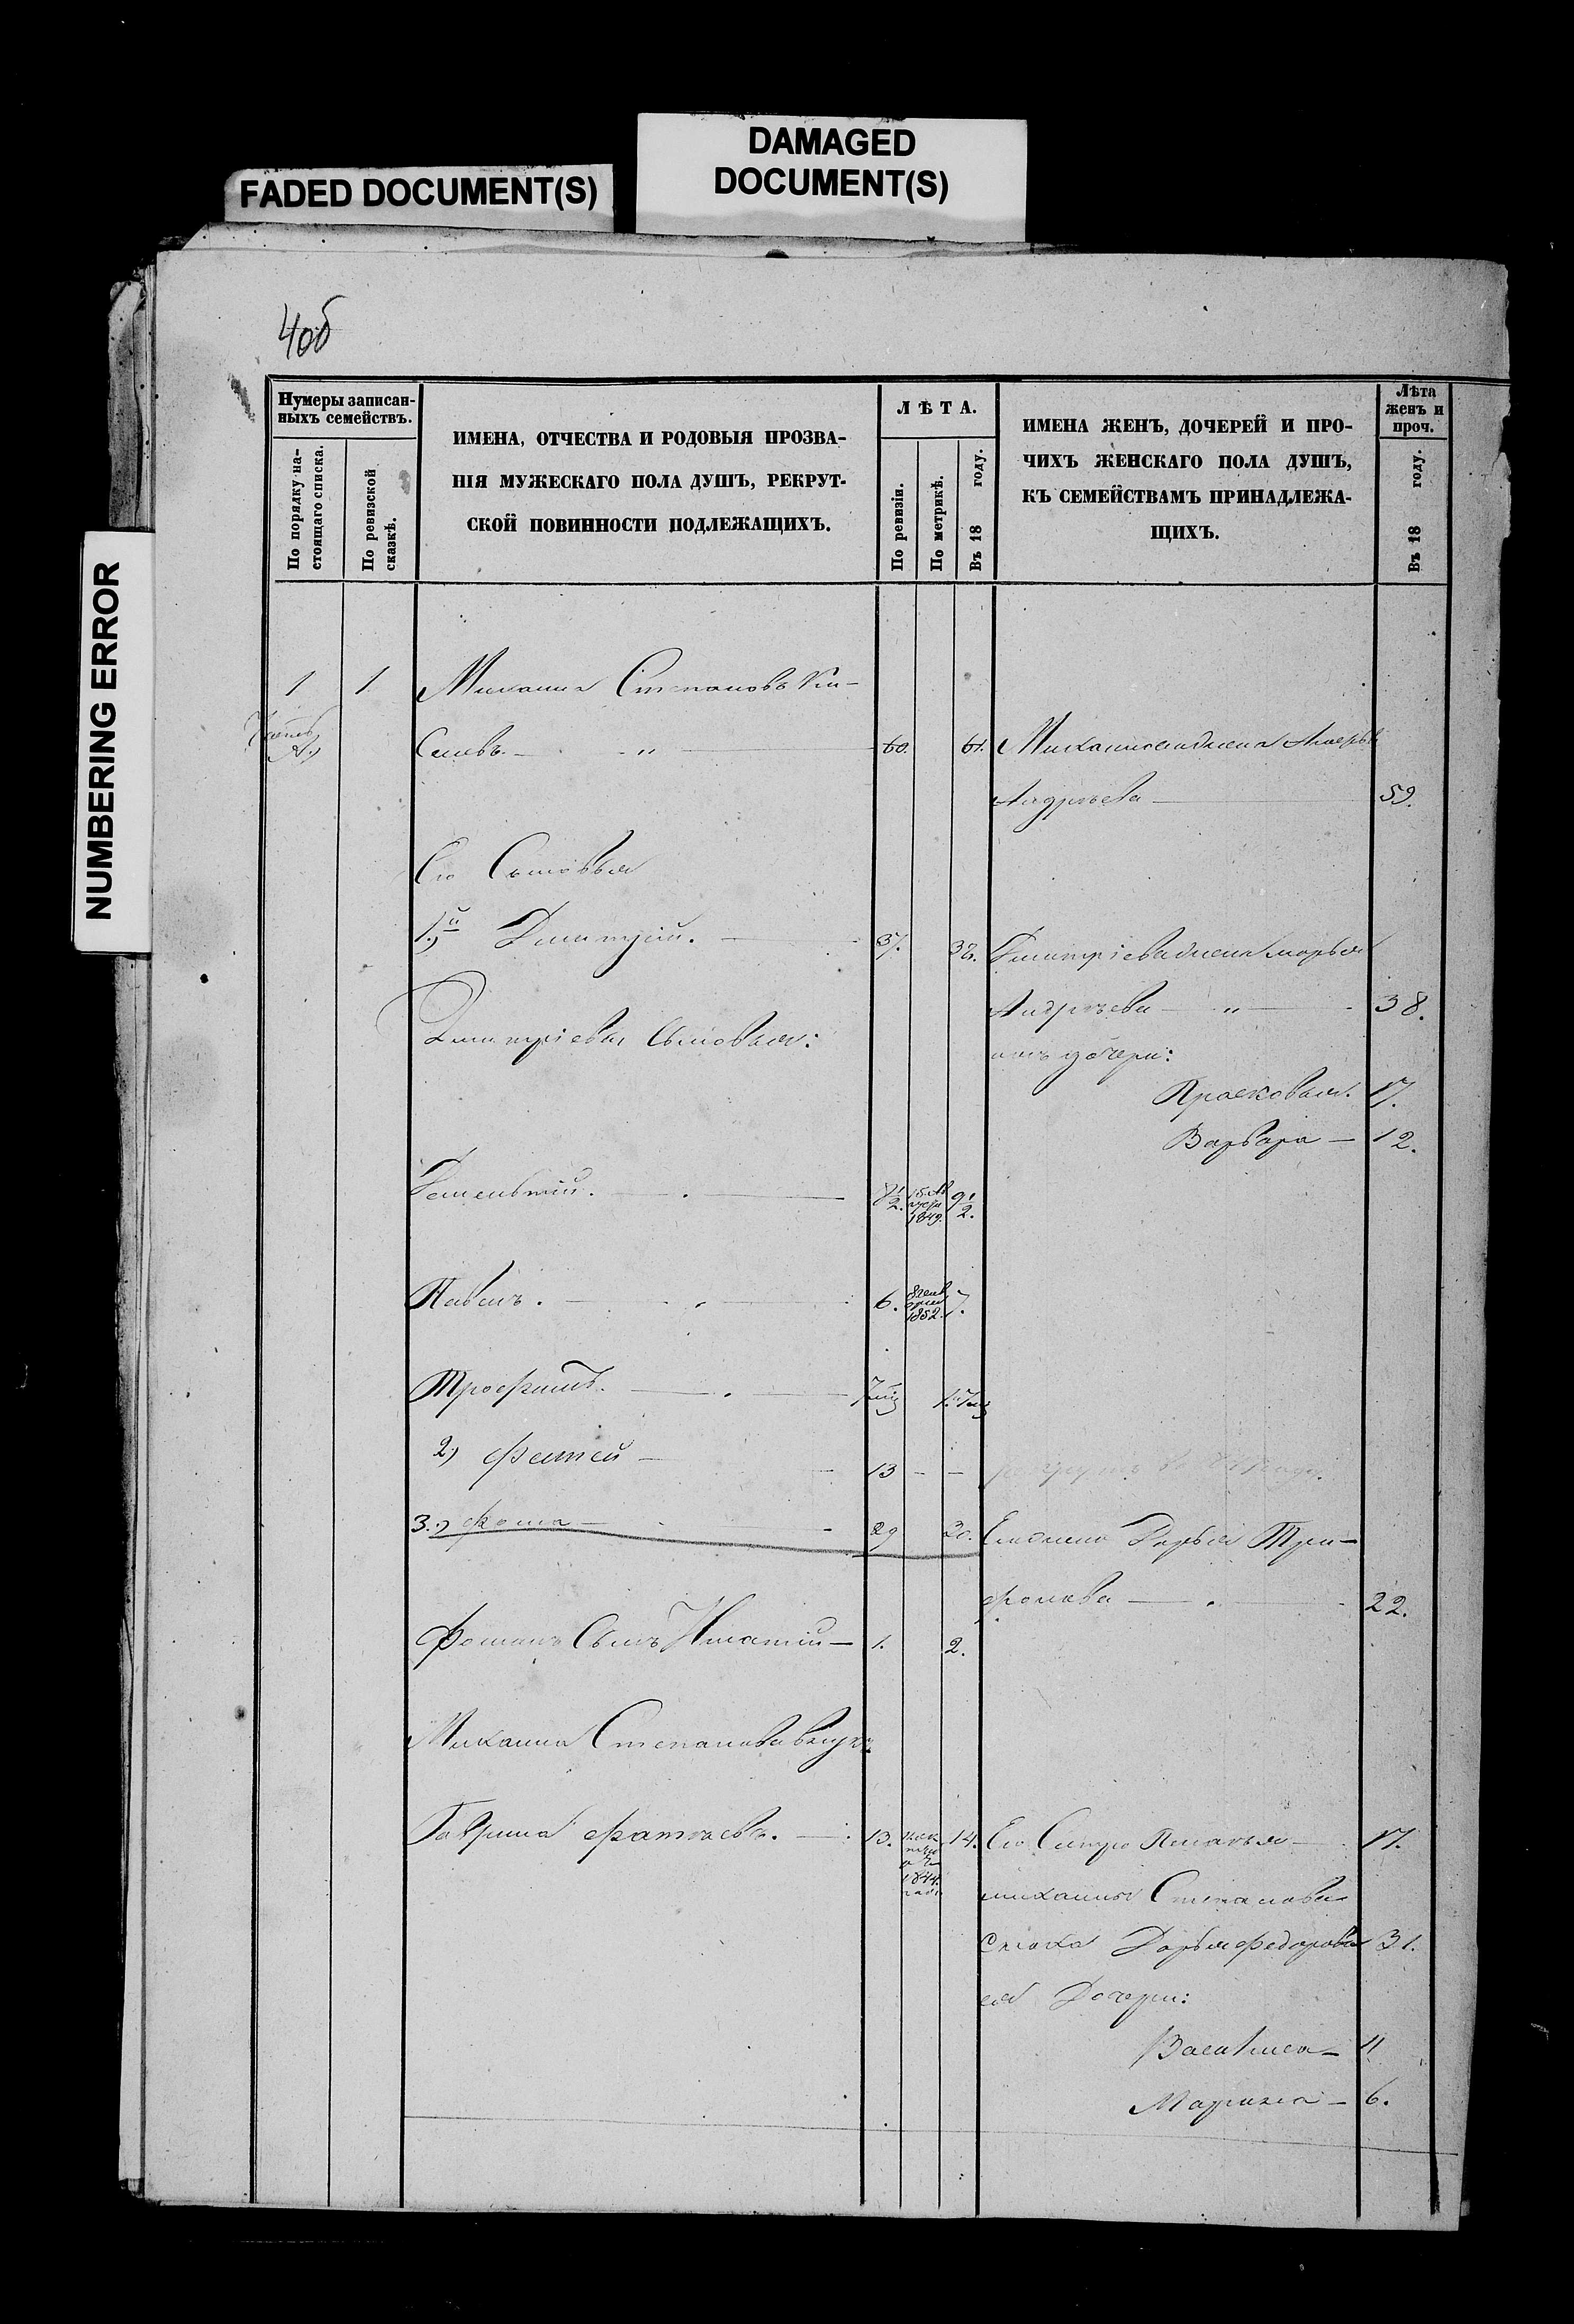 DAMAGED
DOCUMENT(S)
FADED DOCUMENT(S)
NUMBERING ERROR
40б
Нумеры записан-
ныхъ семействъ.
По порядку на-
стоящаго списка.
По ревизской
сказкѣ.
ИМЕНА, ОТЧЕСТВА И РОДОВЫЯ ПРОЗВА-
НІЯ МУЖЕСКАГО ПОЛА ДУШЪ, РЕКРУТ-
СКОЙ ПОВИННОСТИ ПОДЛЕЖАЩИХЪ.
ЛѢТА.
По ревизіи.
По метрикѣ.
Въ 18 году.
ИМЕНА ЖЕНЪ, ДОЧЕРЕЙ И ПРО-
ЧИХЪ ЖЕНСКАГО ПОЛА ДУШЪ,
КЪ СЕМЕЙСТВАМЪ ПРИНАДЛЕЖА-
ЩИХЪ.
Лѣта
женъ и
проч.
Въ 18 году.
1 1. Михаила Степановъ Ки-
селевъ. — " — 60. 61. Михаилова жена
Андреева — 59.
Его Сыновья
1.й Дмитрій. — 37. 38. Дмитріева жена Марья
Андреева — " — 38.
Дмитріевы Сыновья:
ихъ дочери:
Прасковья. 17.
Варвара — 12.
8 1/2. 1849. 9 1/2.
Павелъ. — 6. 1852. 7.
Трофимъ. —
2) Фатей — 13 — —
3.) Фома — 29 30. Его жена Дарья Три-
фонова — 22.
Фоминъ Сынъ Игнатій — 1. 2.
Михаила Степанова внукъ
Гаврила Фатѣевъ. — 13. 1844. 14. Его Сестра — 17.
Михаилы Степанова
Сноха Дарья Федорова 31.
ея Дочери:
Василиса — 11
Марина — 6.